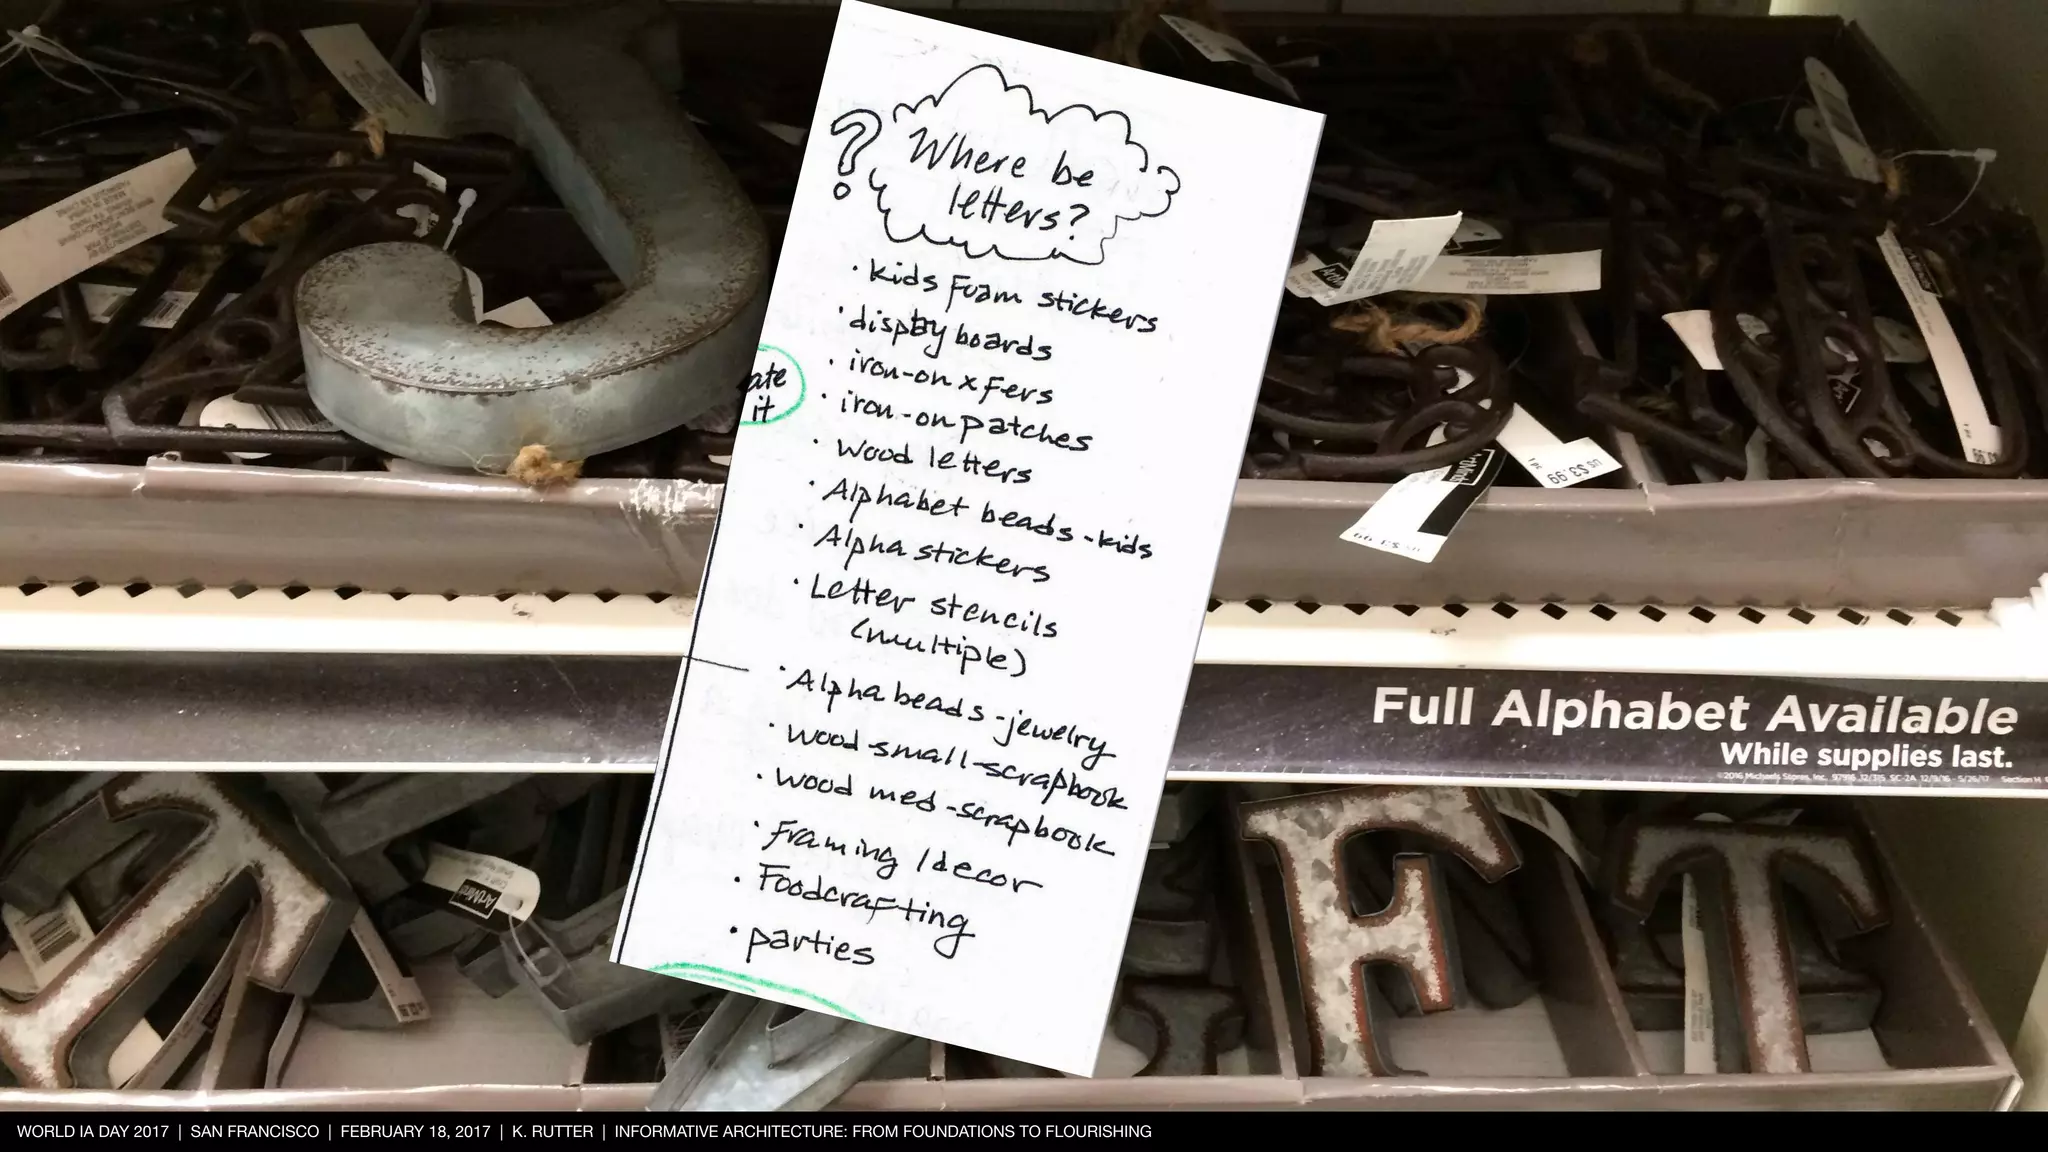 ?
Where be
letters?
· kids foam stickers
· display boards
· iron-on xfers
· iron-on patches
· wood letters
· Alphabet beads - kids
· Alpha stickers
· Letter stencils
(multiple)
· Alpha beads - jewelry
· wood - small - scrapbook
· wood med - scrapbook
· Framing / decor
· Foodcrafting
· parties
ate
it
ArtMinds
US $3.99
Full Alphabet Available
While supplies last.
©2016 Michaels Stores, Inc.
ArtMinds
J
F
T
WORLD IA DAY 2017 | SAN FRANCISCO | FEBRUARY 18, 2017 | K. RUTTER | INFORMATIVE ARCHITECTURE: FROM FOUNDATIONS TO FLOURISHING